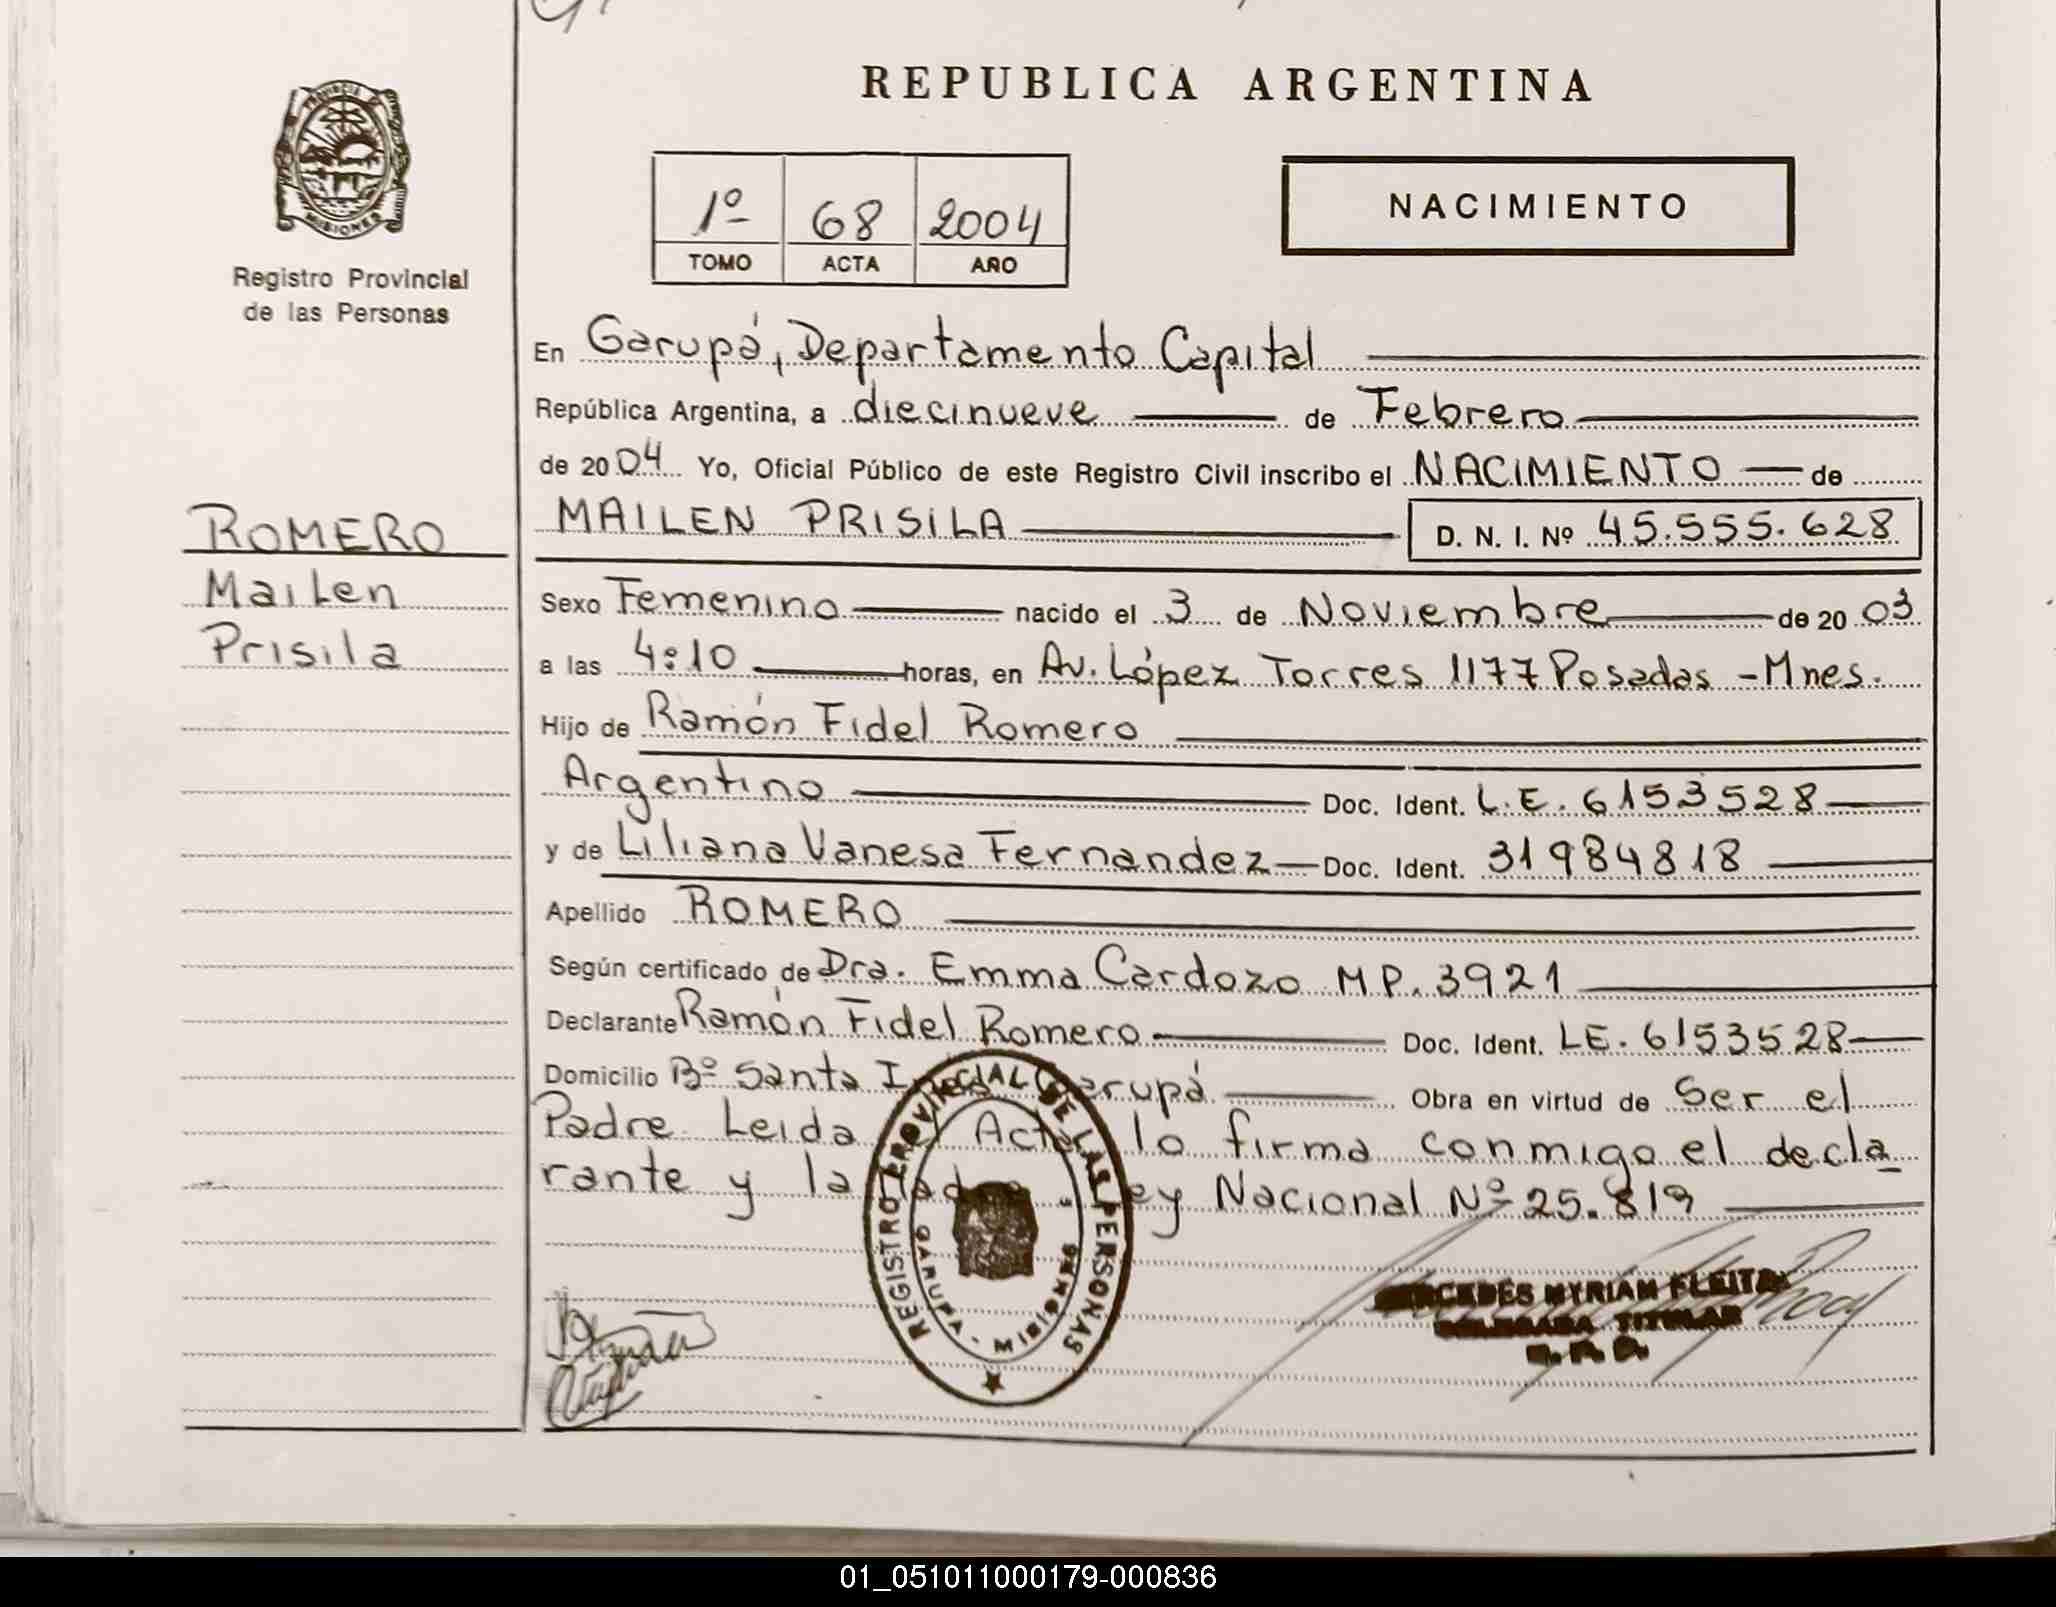 REPUBLICA ARGENTINA
PROVINCIA DE MISIONES
Registro Provincial
de las Personas
1º 68 2004
TOMO ACTA AÑO
NACIMIENTO
En Garupá, Departamento Capital
República Argentina, a diecinueve de Febrero
de 2004 Yo, Oficial Público de este Registro Civil inscribo el NACIMIENTO de
MAILEN PRISILA D. N. I. Nº 45.555.628
ROMERO
Mailen
Prisila
Sexo Femenino nacido el 3 de Noviembre de 2003
a las 4:10 horas, en Av. López Torres 1177 Posadas - Mnes.
Hijo de Ramón Fidel Romero
Argentino Doc. Ident. L.E. 6153528
y de Liliana Vanesa Fernandez Doc. Ident. 31984818
Apellido ROMERO
Según certificado de Dra. Emma Cardozo MP. 3921
Declarante Ramón Fidel Romero Doc. Ident. LE. 6153528
Domicilio Bº Santa Garupá Obra en virtud de Ser el
Padre Leida Acta lo firma conmigo el decla
rante y la Ley Nacional Nº 25.819
REGISTRO PROVINCIAL DE LAS PERSONAS
GARUPA - MISIONES
MERCEDES MYRIAM FLEITA
DELEGADA TITULAR
01_051011000179-000836